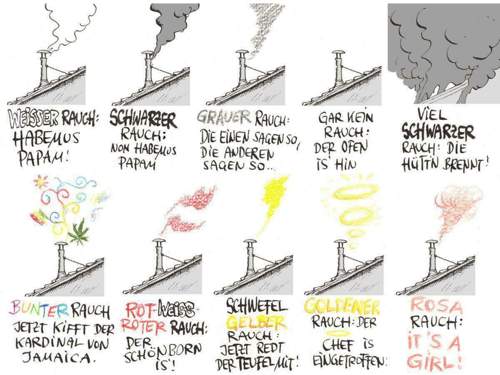 WEISSER RAUCH:
HABEMUS
PAPAM!
SCHWARZER
RAUCH:
NON HABEMUS
PAPAM
GRAUER RAUCH:
DIE EINEN SAGEN SO,
DIE ANDEREN
SAGEN SO...
GAR KEIN
RAUCH:
DER OFEN
IS' HIN
VIEL
SCHWARZER
RAUCH: DIE
HÜTTN BRENNT!
BUNTER RAUCH
JETZT KIFFT DER
KARDINAL VON
JAMAICA.
ROT-WEISS-
ROTER RAUCH:
DER
SCHÖNBORN
IS'!
SCHWEFEL
GELBER
RAUCH:
JETZT REDT
DER TEUFEL MIT!
GOLDENER
RAUCH: DER
CHEF IS
EINGETROFFEN.
ROSA
RAUCH:
IT'S A
GIRL!